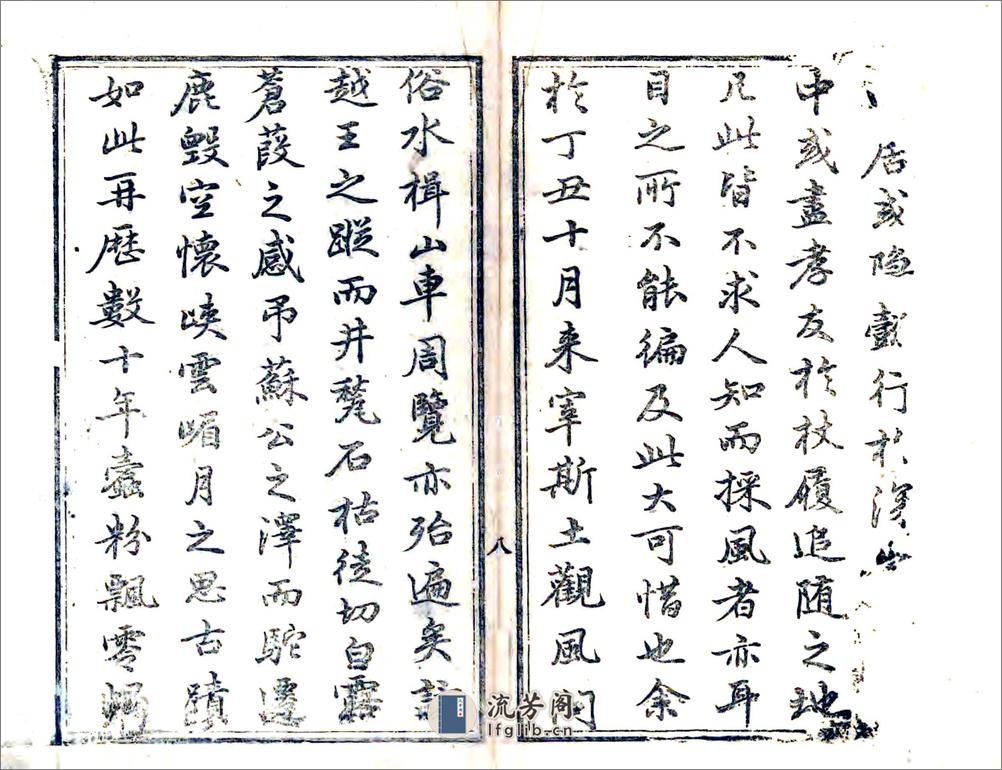 居或隐德行於深山
中或盡孝友於杖履追随之地
凡此皆不求人知而採風者亦耳
目之所不能徧及此大可惜也余
於丁丑十月来宰斯土觀風问
俗水楫山車周覽亦殆遍矣訪
越王之蹤而井甃石枯徒切白露
蒼葭之感吊蘇公之澤而駝遷
鹿毀空懷峡雲嵋月之思古蹟
如此再歷數十年蠹粉飄零蝸
八
流芳阁
lfglib.cn